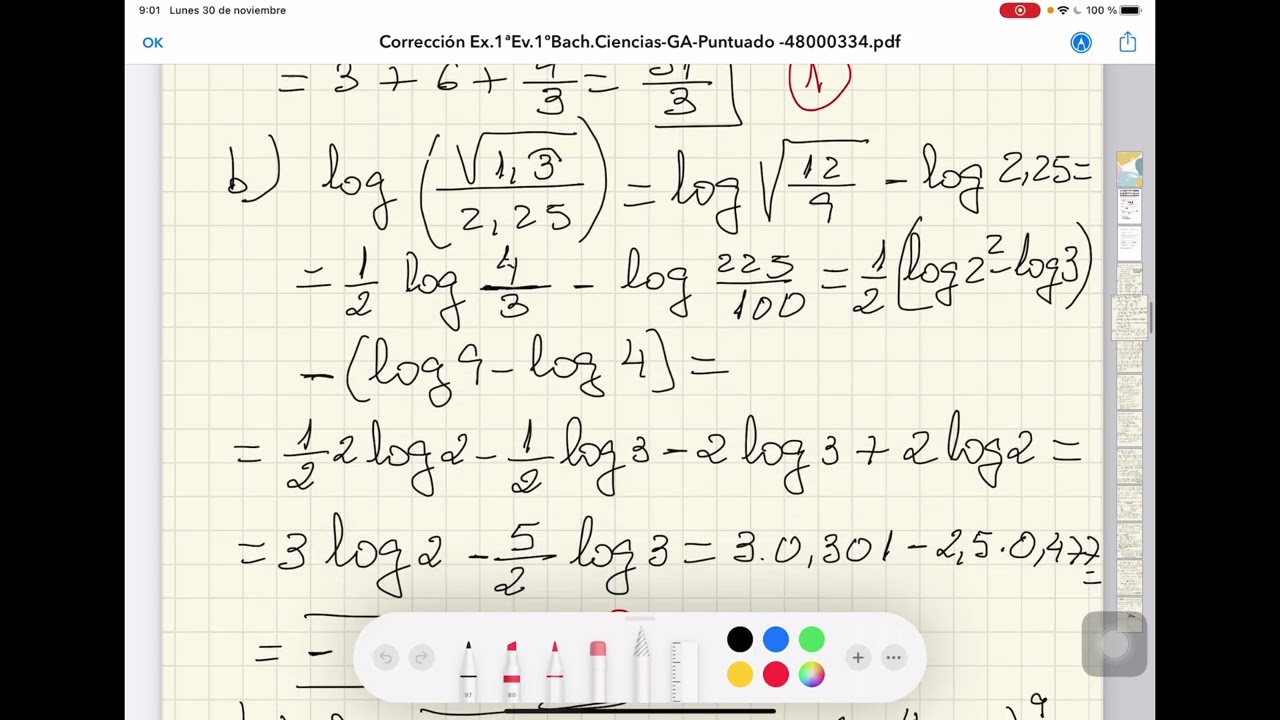 9:01 Lunes 30 de noviembre 100 %
OK Corrección Ex.1ªEv.1ºBach.Ciencias-GA-Puntuado -48000334.pdf
= 3 + 6 + 4/3 = 31/3 1
b) log (√1,3̂ / 2,25) = log √(12/9) - log 2,25 =
= 1/2 log 4/3 - log 225/100 = 1/2 (log 2² - log 3)
- (log 9 - log 4) =
= 1/2 2 log 2 - 1/2 log 3 - 2 log 3 + 2 log 2 =
= 3 log 2 - 5/2 log 3 = 3.0,301 - 2,5.0,477 =
= -
97 80